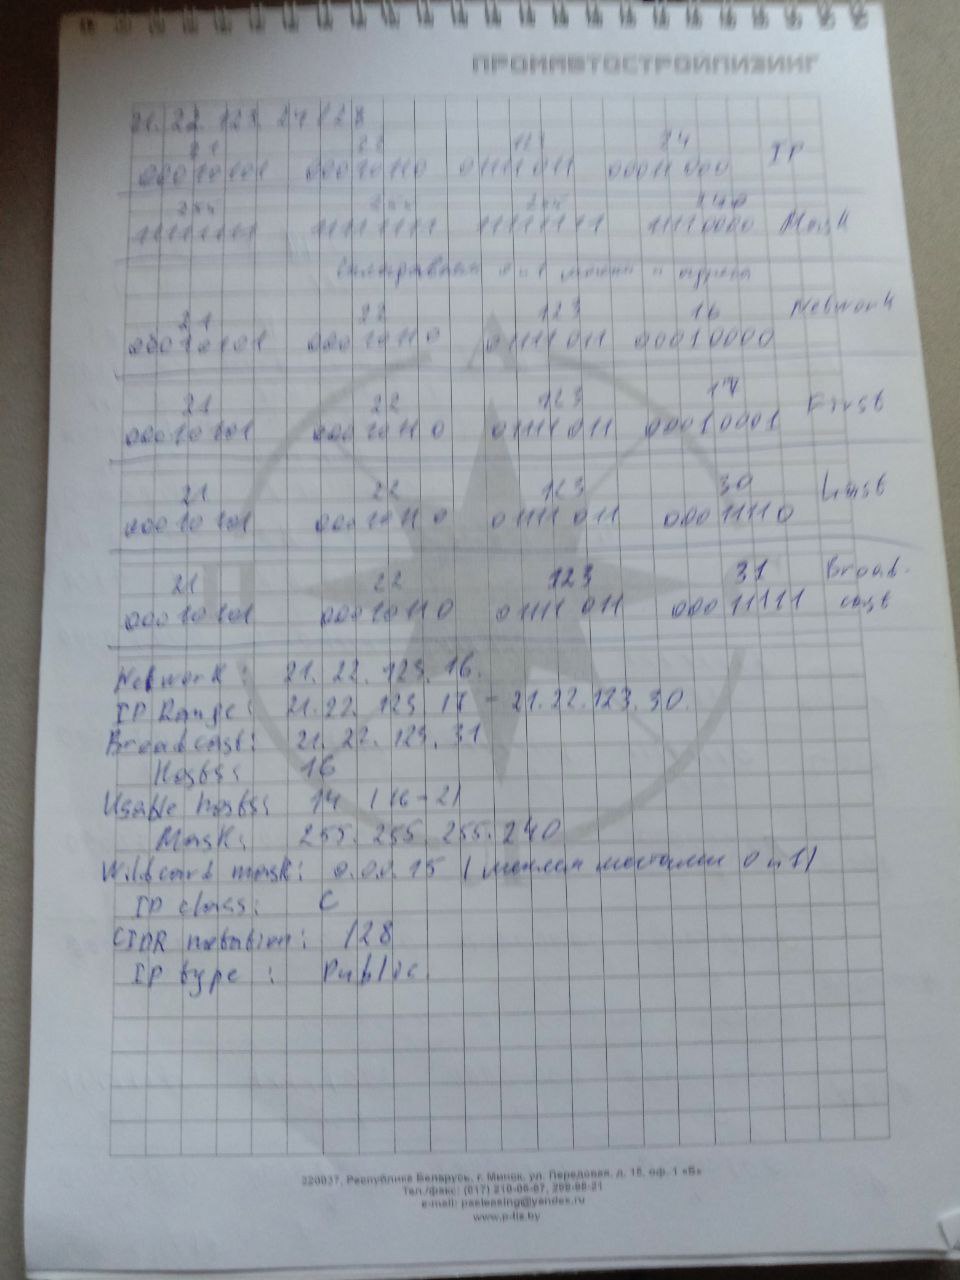 ПРОМАВТОСТРОЙЛИЗИНГ
21. 22. 123. 24 /28
21 22 123 24
00010101 00010110 01111011 00011000 IP
255 255 255 240
11111111 11111111 11111111 11110000 Mask
21 22 123 16 Network
00010101 00010110 01111011 00010000
21 22 123 17 First
00010101 00010110 01111011 00010001
21 22 123 30 Last
00010101 00010110 01111011 00011110
21 22 123 31 Broad-
00010101 00010110 01111011 00011111 cast
Network: 21. 22. 123. 16.
IP Range: 21.22. 123. 17 - 21.22.123.30.
Broadcast: 21. 22. 123. 31
Hosts: 16
Usable hosts: 14 (16-2)
Mask: 255. 255. 255. 240
Wildcard mask: 0.0.0.15 (меняем местами 0 и 1)
IP class: C
CIDR notation: /28
IP type: Public
220037, Республика Беларусь, г. Минск, ул. Передовая, д. 15, оф. 1 «Б»
Тел./факс: (017) 210-06-67,
e-mail: pasleasing@yandex.ru
www.p-lis.by